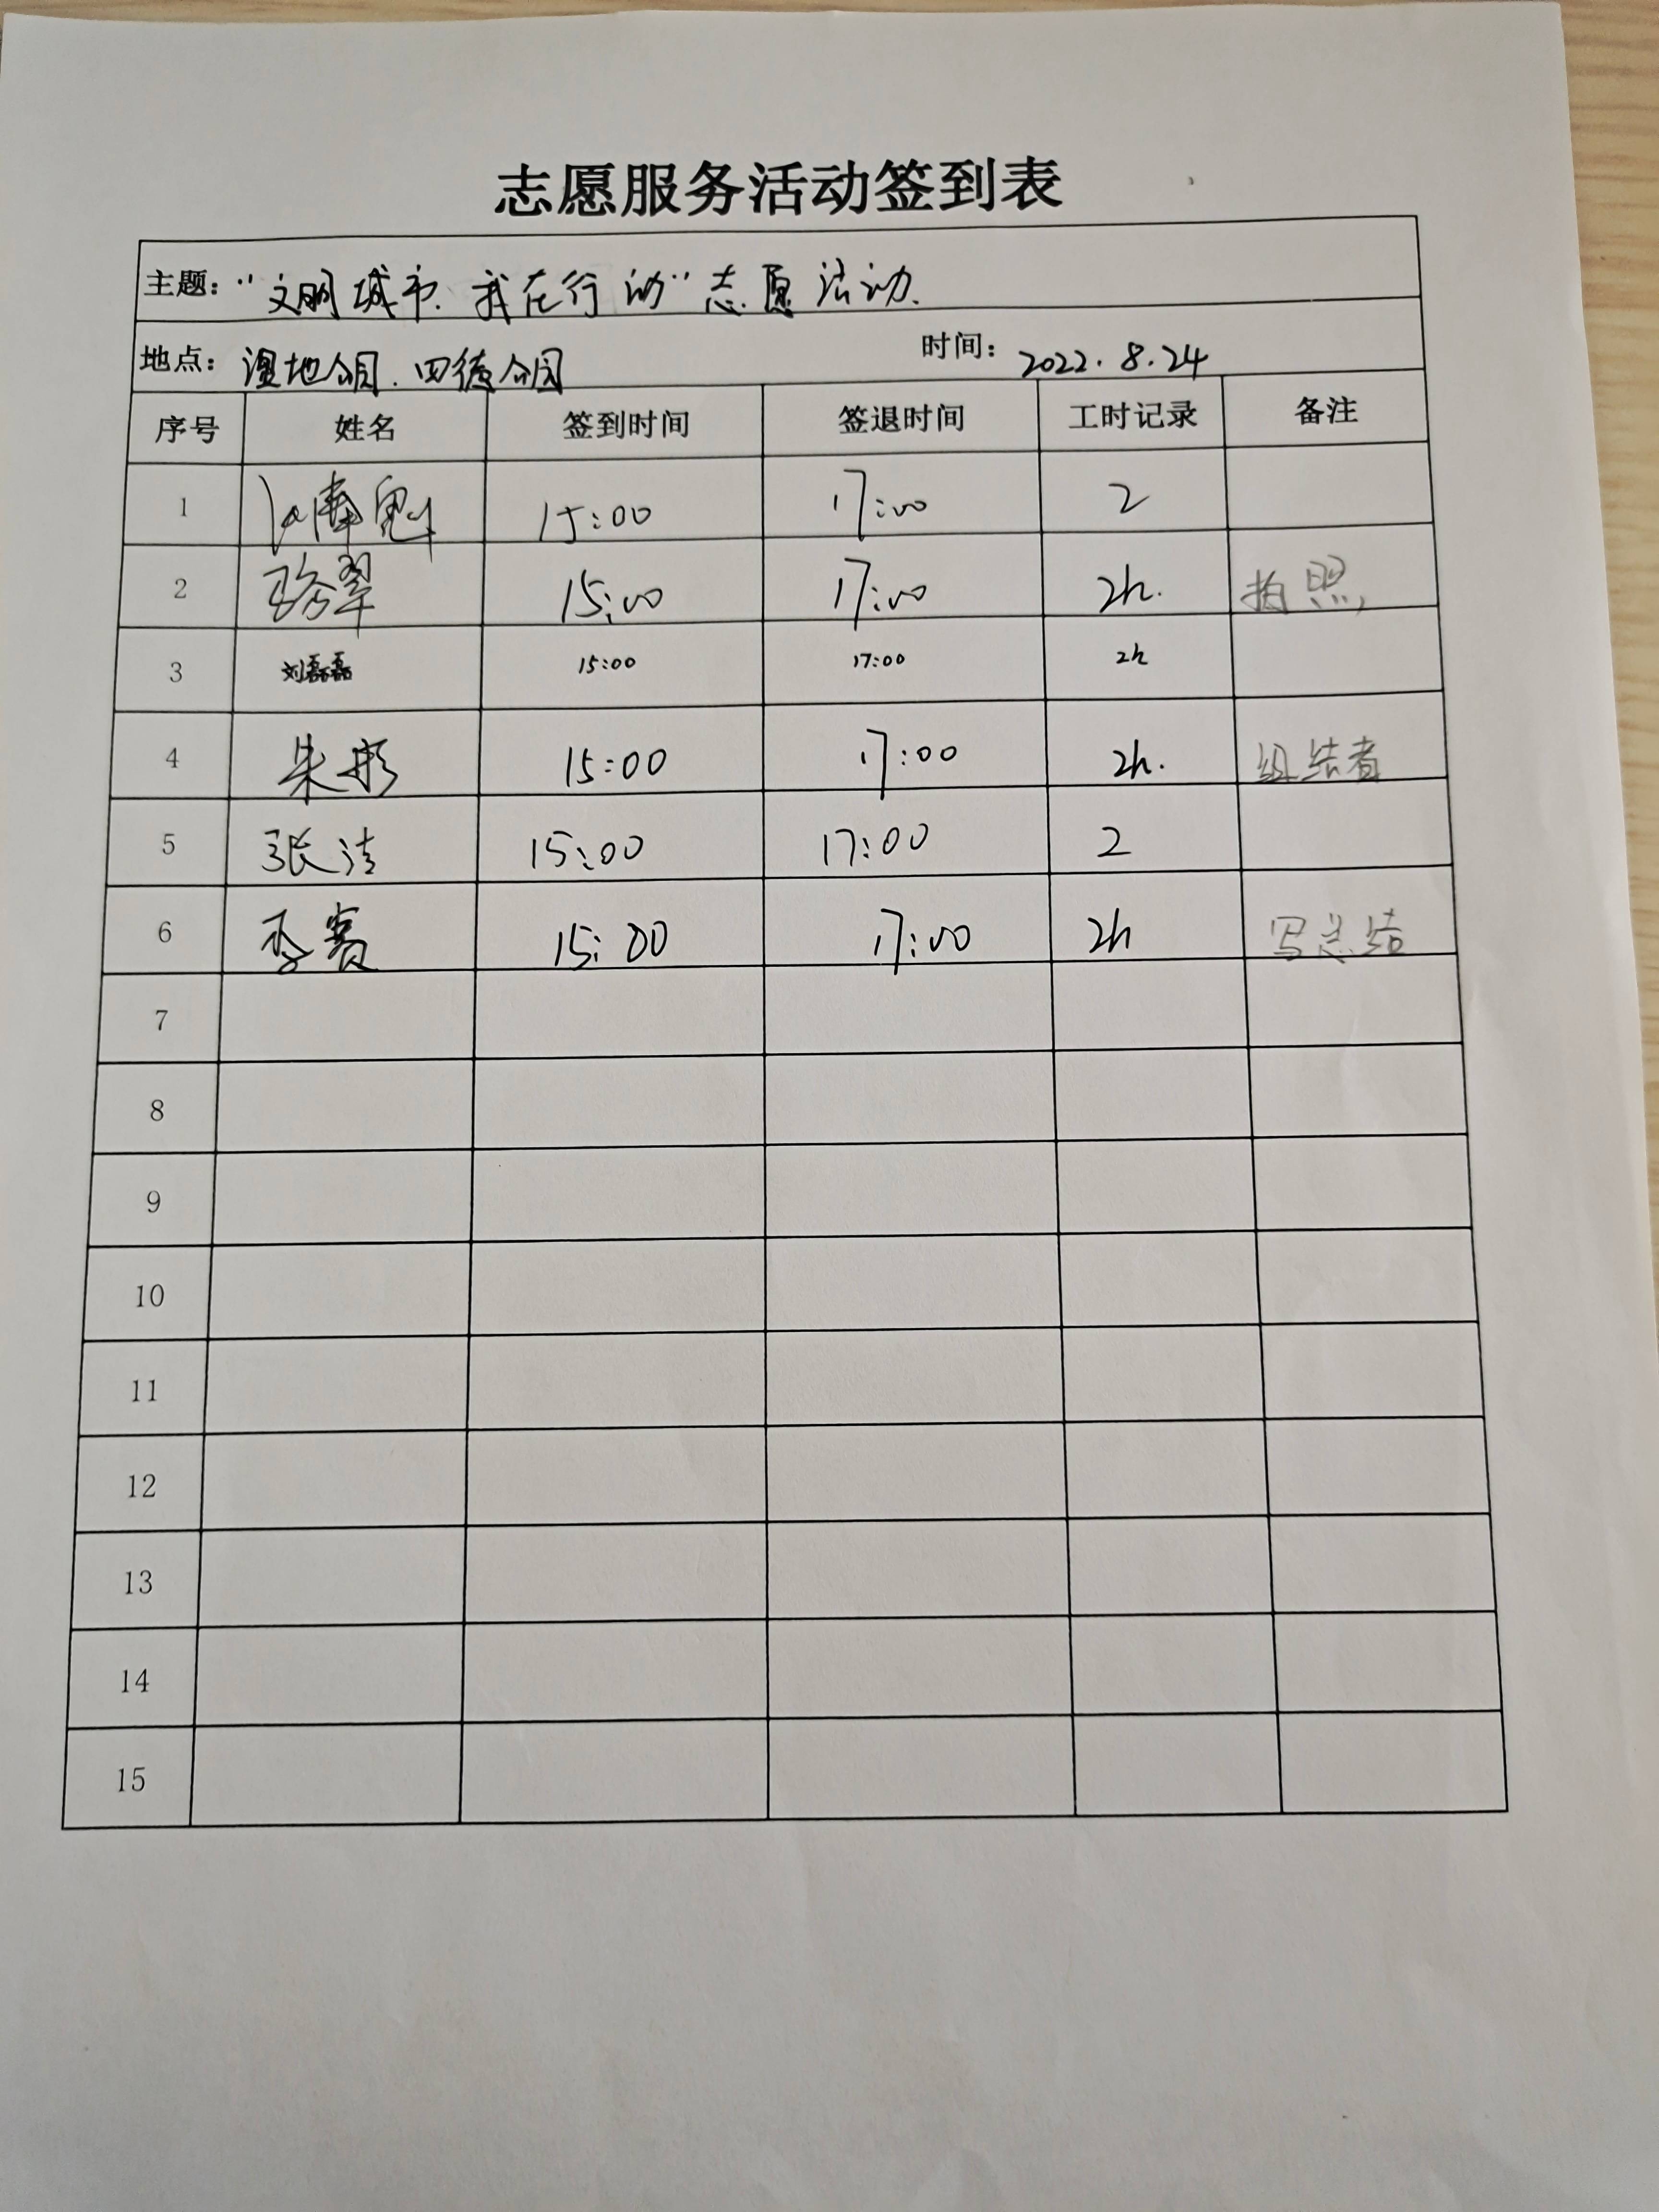 志愿服务活动签到表
主题："文明城市.我在行动"志愿活动.
地点：湿地公园.四德公园 时间：2022.8.24
序号 姓名 签到时间 签退时间 工时记录 备注
1 15:00 17:00 2
2 骆翠 15:00 17:00 2h. 拍照
3 刘磊磊 15:00 17:00 2h
4 朱彤 15:00 17:00 2h. 组结者
5 张洁 15:00 17:00 2
6 李赛 15:00 17:00 2h 写总结
7
8
9
10
11
12
13
14
15